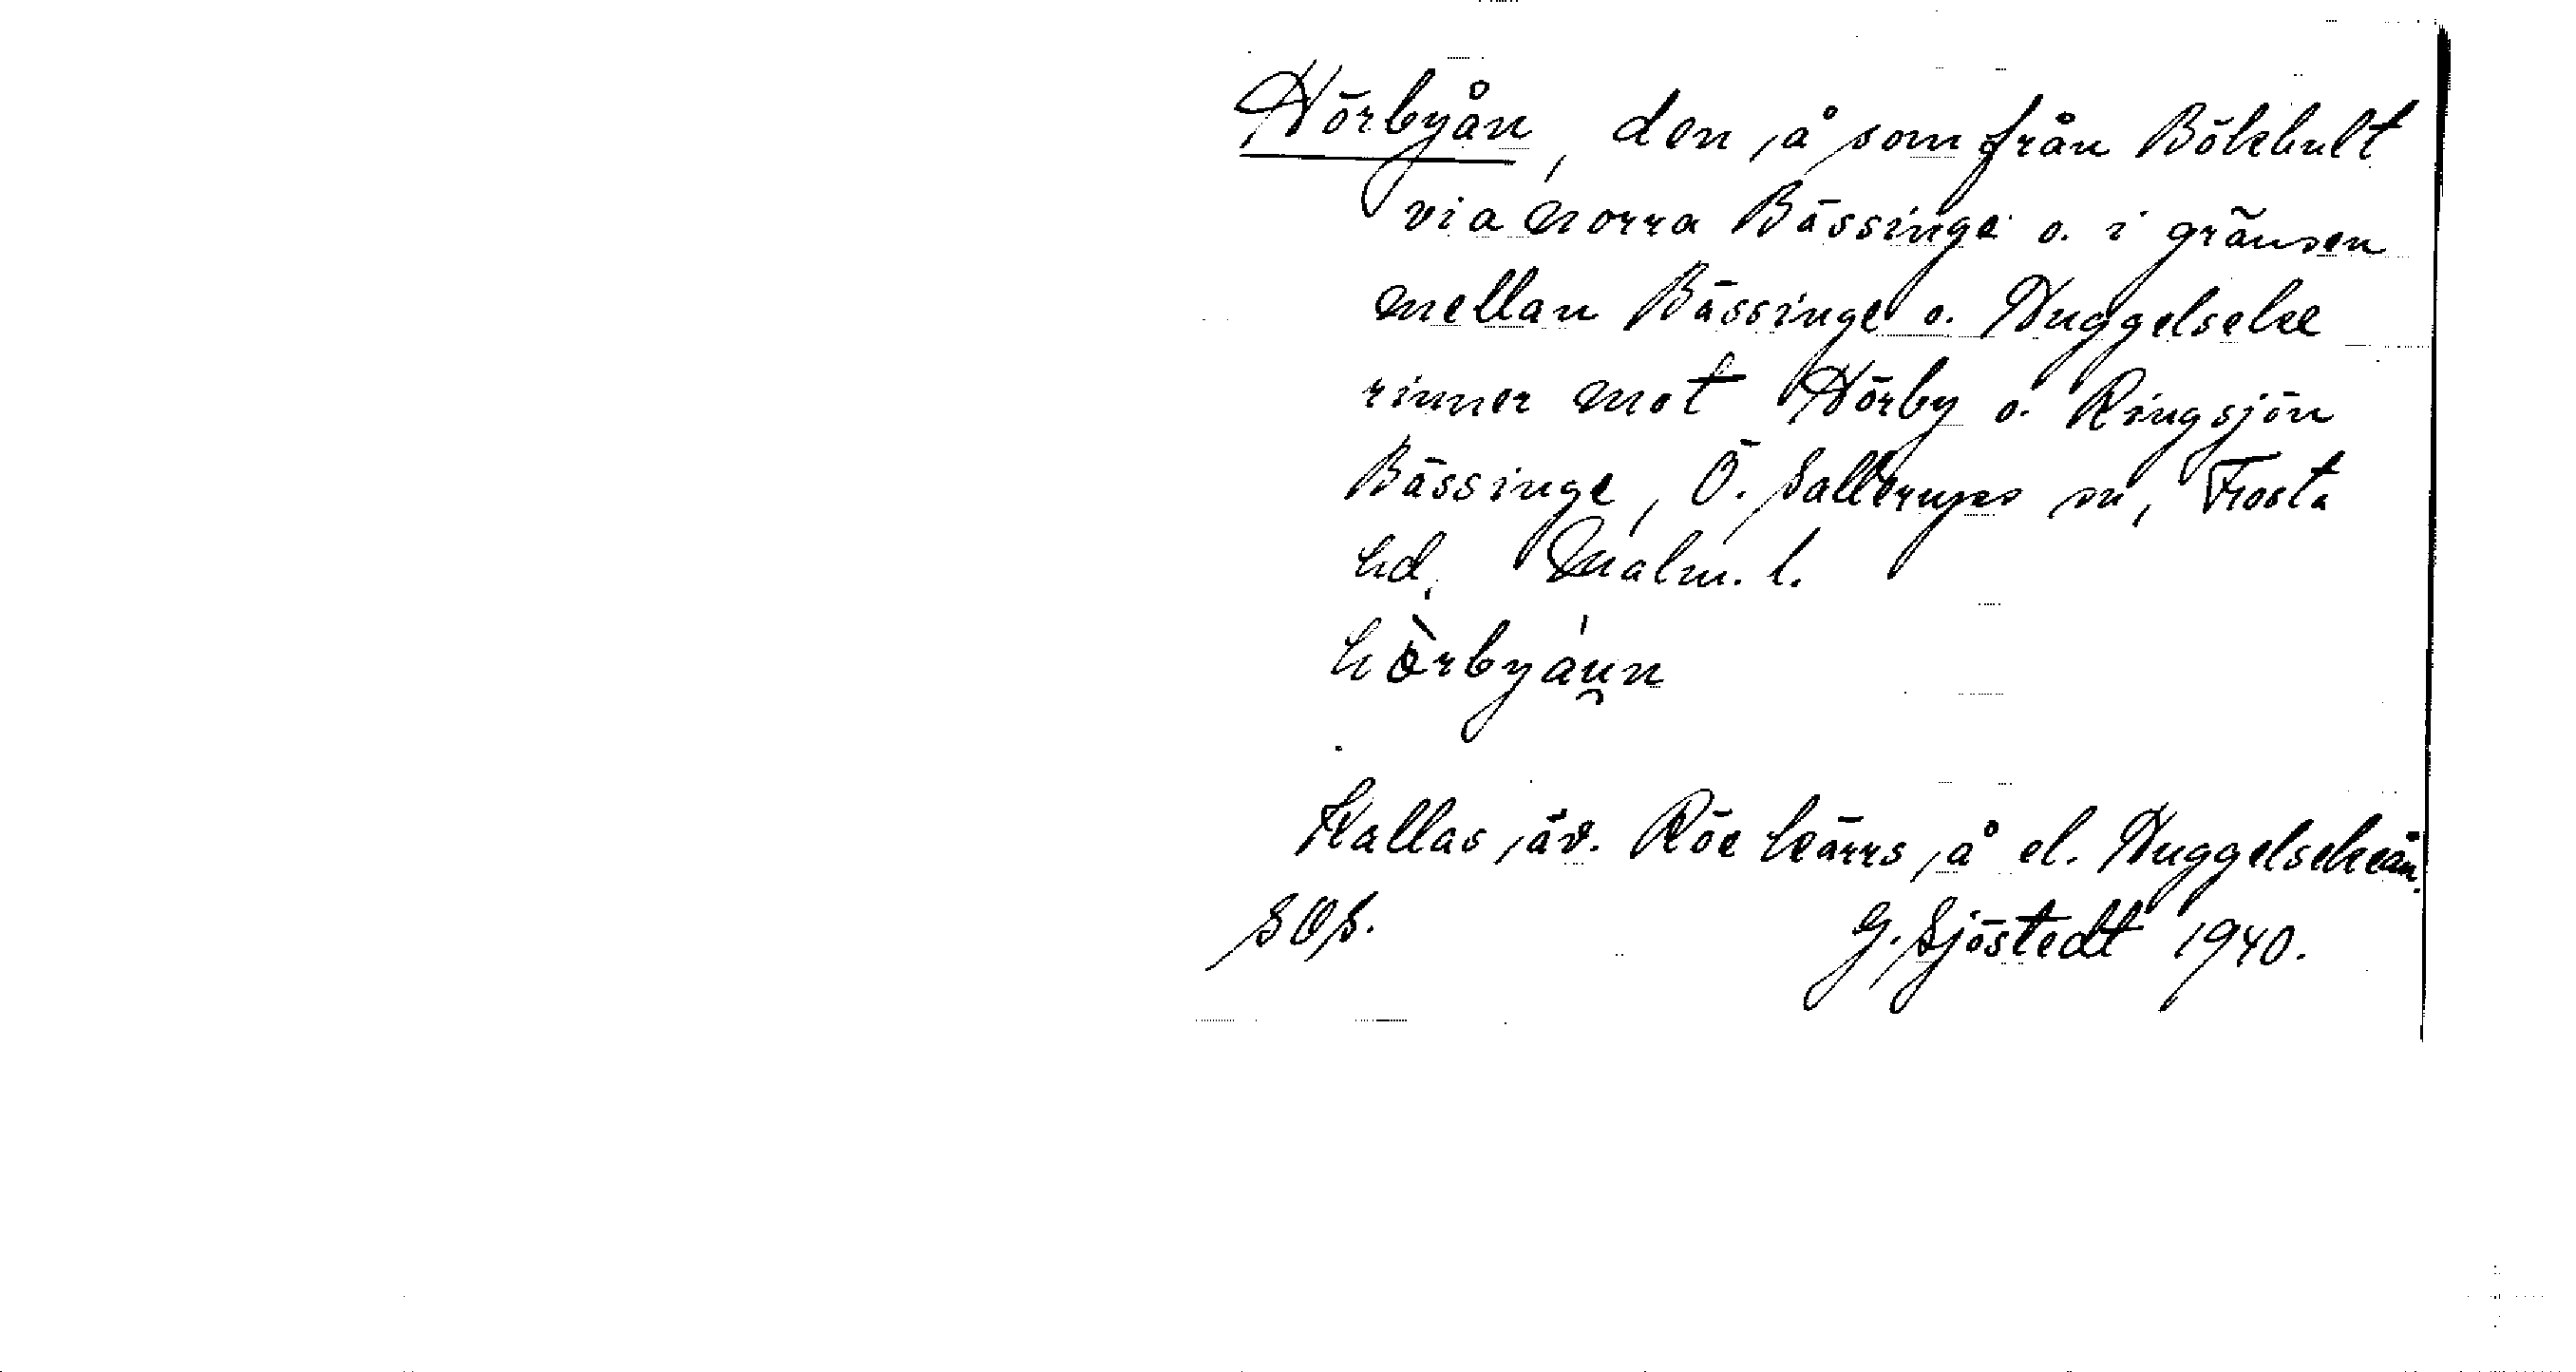 Hörbyån, den å som från Bökhult
via norra Bässinge o. i gränsen
mellan Bässinge o. Huggelseke
rinner mot Hörby o. Ringsjön
Bässinge, Ö. Sallerups sn, Frosta
hd, Malm. l.
hörbyån
Kallas äv. Röe kärrs å el. Huggelsekeån.
SOS. G. Sjöstedt 1940.